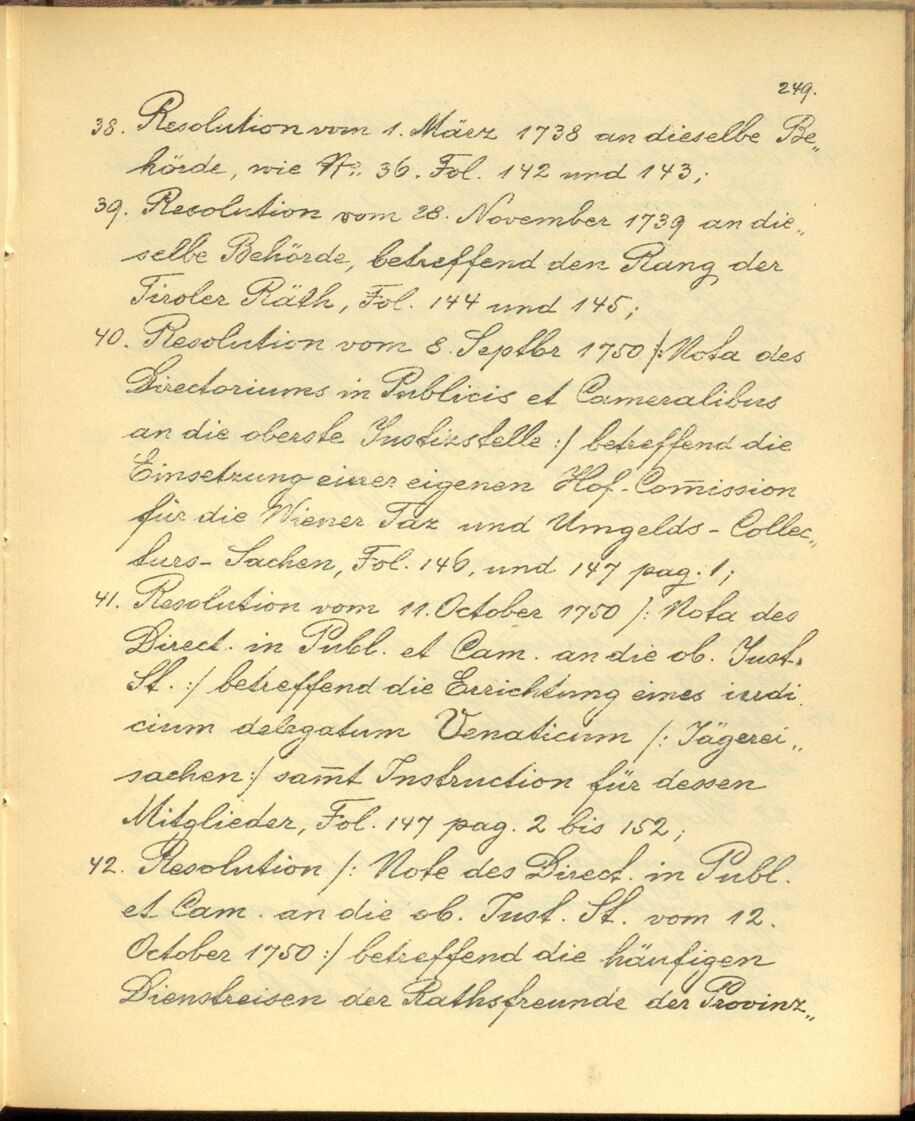 249.
38. Resolution vom 1. März 1738 an dieselbe Be„
hörde, wie No. 36. Fol. 142 und 143;
39. Resolution vom 28. November 1739 an die„
selbe Behörde, betreffend den Rang der
Tiroler Räth, Fol. 144 und 145;
40. Resolution vom 8. Septbr 1750 /: Nota des
Directoriums in Publicis et Cameralibus
an die oberste Justizstelle :/ betreffend die
Einsetzung einer eigenen Hof-Com̅ission
für die Wiener Taz und Umgelds-Collec„
turs-Sachen, Fol. 146, und 147 pag. 1;
41. Resolution vom 11. October 1750 /: Nota des
Direct. in Publ. et Cam. an die ob. Just.
St. :/ betreffend die Errichtung eines iudi
cium delegatum Venaticum /: Jägerei„
sachen :/ sam̅t Instruction für dessen
Mitglieder, Fol. 147 pag. 2 bis 152;
42. Resolution /: Note des Direct. in Publ.
et Cam. an die ob. Just. St. vom 12.
October 1750 :/ betreffend die häufigen
Dienstreisen der Rathsfreunde der Provinz„